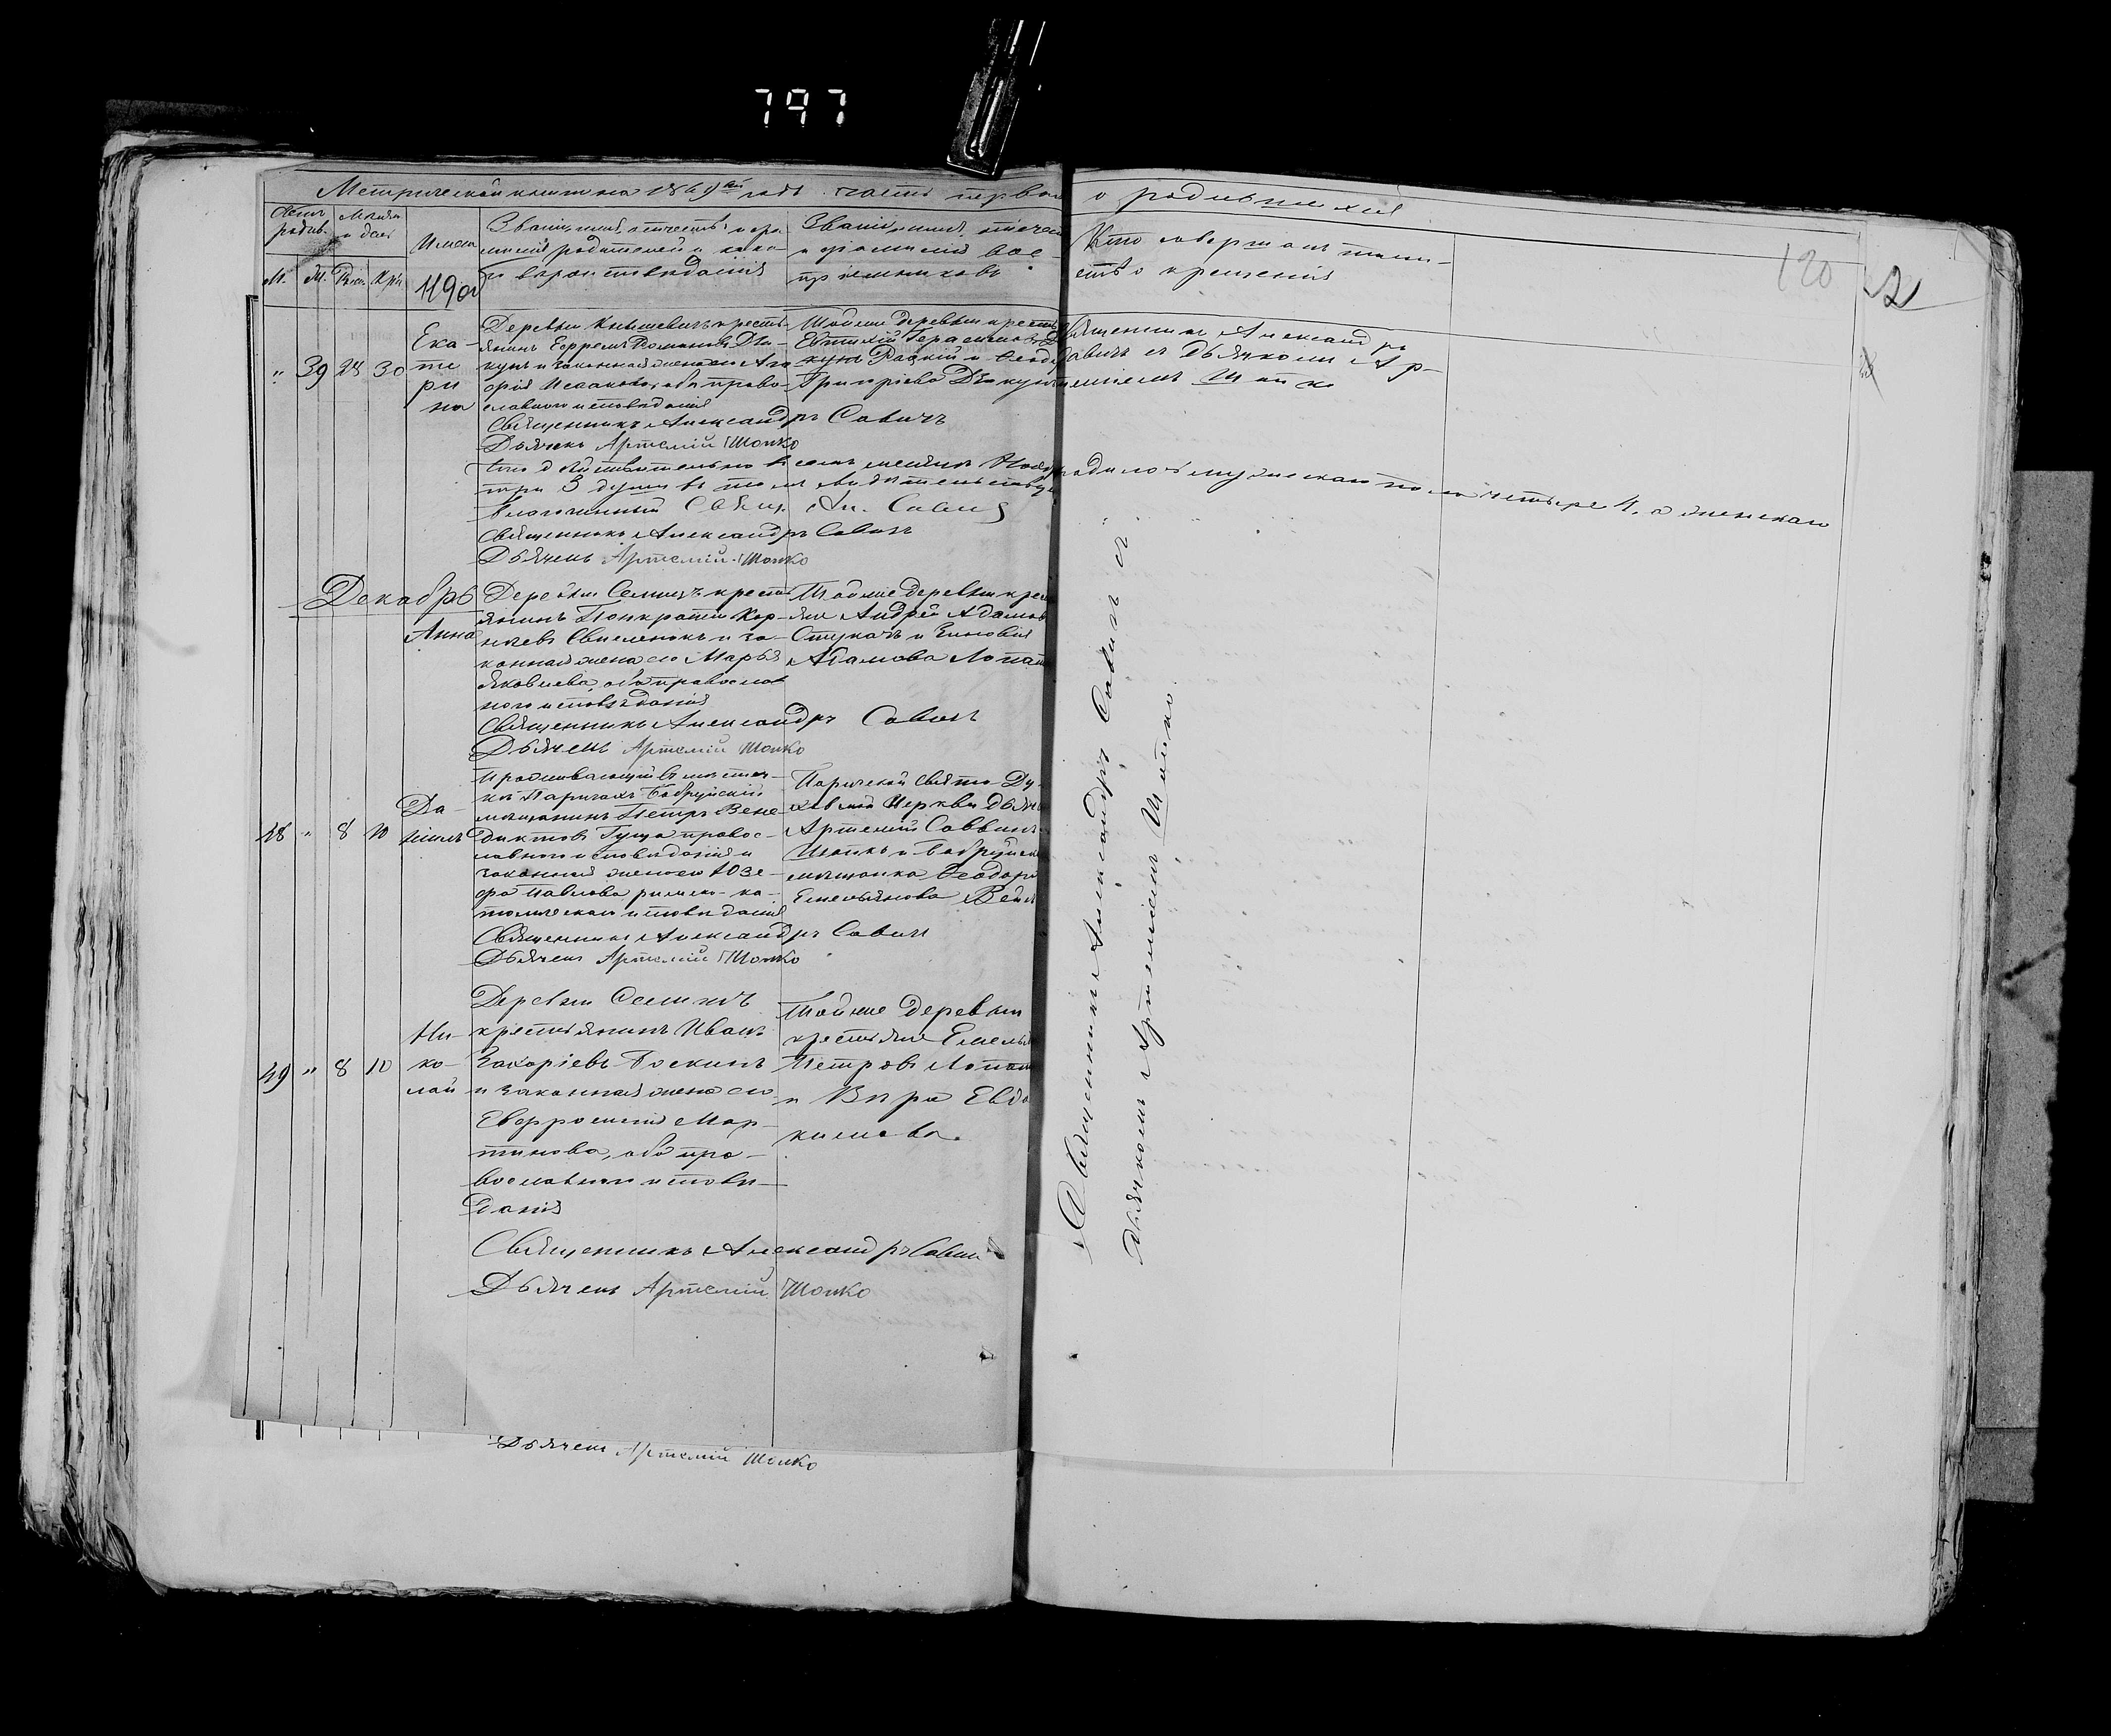 797
Метрической книги на 1869ый годъ часть первая о родившихся
120
Счетъ родив.
Месяцъ и день
Имена
Званіе, имя, отчество и фамилія родителей и какого вероисповеданія
Званіе, имя, отчество и фамилія воспріемниковъ
Кто совершалъ таинство крещенія
М. Ж. Рож. Кре.
119об
" 39 28 30
Ека-
те
ри
на
Деревни Кнышевичъ кресть-
янинъ Ефремъ Романовъ Дя-
кунъ и законная жена его
Исакова, оба право-
славного исповеданія
Тойже деревни крестья
Евтихій Герасимовъ
и Феодо
Григоріева Дякунъ
Священникъ Александръ
Савичъ съ Дьячкомъ Ар-
теміемъ Шапко
Священникъ Александръ Савичъ
Дьячекъ Артемій Шапко
Что действительно въ семъ месяце Нояб родилось мужескаго пола четыре 4. а женскаго
три 3 души въ томъ свидетельствуе
Благочинный Свящ. Ал. Савич
Священникъ Александръ Савичъ
Дьячекъ Артемій Шапко
Декабрь
Анна
Деревни Селищъ кресть
янинъ Панкратій Кор-
неевъ и за-
конная жена его Марья
Яковлева, оба православ
ного исповеданія
Тойже деревни крес
яне Андрей Адамов
и Зиновія
Адамова Лопат
Священникъ Александръ Савичъ
Дьячекъ Артемій Шапко
48 " 8 10
Да-
ніилъ
Проживающій въ местеч-
ке Паричахъ Бобруйскій
мещанинъ Петръ Вене-
диктовъ Гуща правос-
лавного исповеданія и
законная жена его Юзе-
фа Павлова римско-ка-
толическаго исповеданія
Паричской Свято Ду-
ховской Церкви Дьяч
Артемій Саввинъ
Шапко и Бобруйская
мещанка Феодора
Емельянова
Священникъ Александръ Савичъ
Дьячекъ Артемій Шапко
49 " 8 10
Ни-
ко-
лай
Деревни Селищъ
крестьянинъ Иванъ
Захаріевъ Поскинъ
и законная жена его
Евфросинія Мар-
тинова, оба пра-
вославного испове-
данія
Тойже деревни
крестьяне Емелья
Петровъ Лопат
и Вера Евдо
кимова.
Священникъ Александръ Савич
Дьячекъ Артемій Шапко
Священникъ Александръ Савичъ съ
Дьячкомъ Артеміемъ Шапко.
Дьячекъ Артемій Шапко